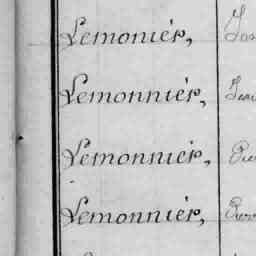 Lemoniér,
Lemonniér,
Lemonniér,
Lemonniér,